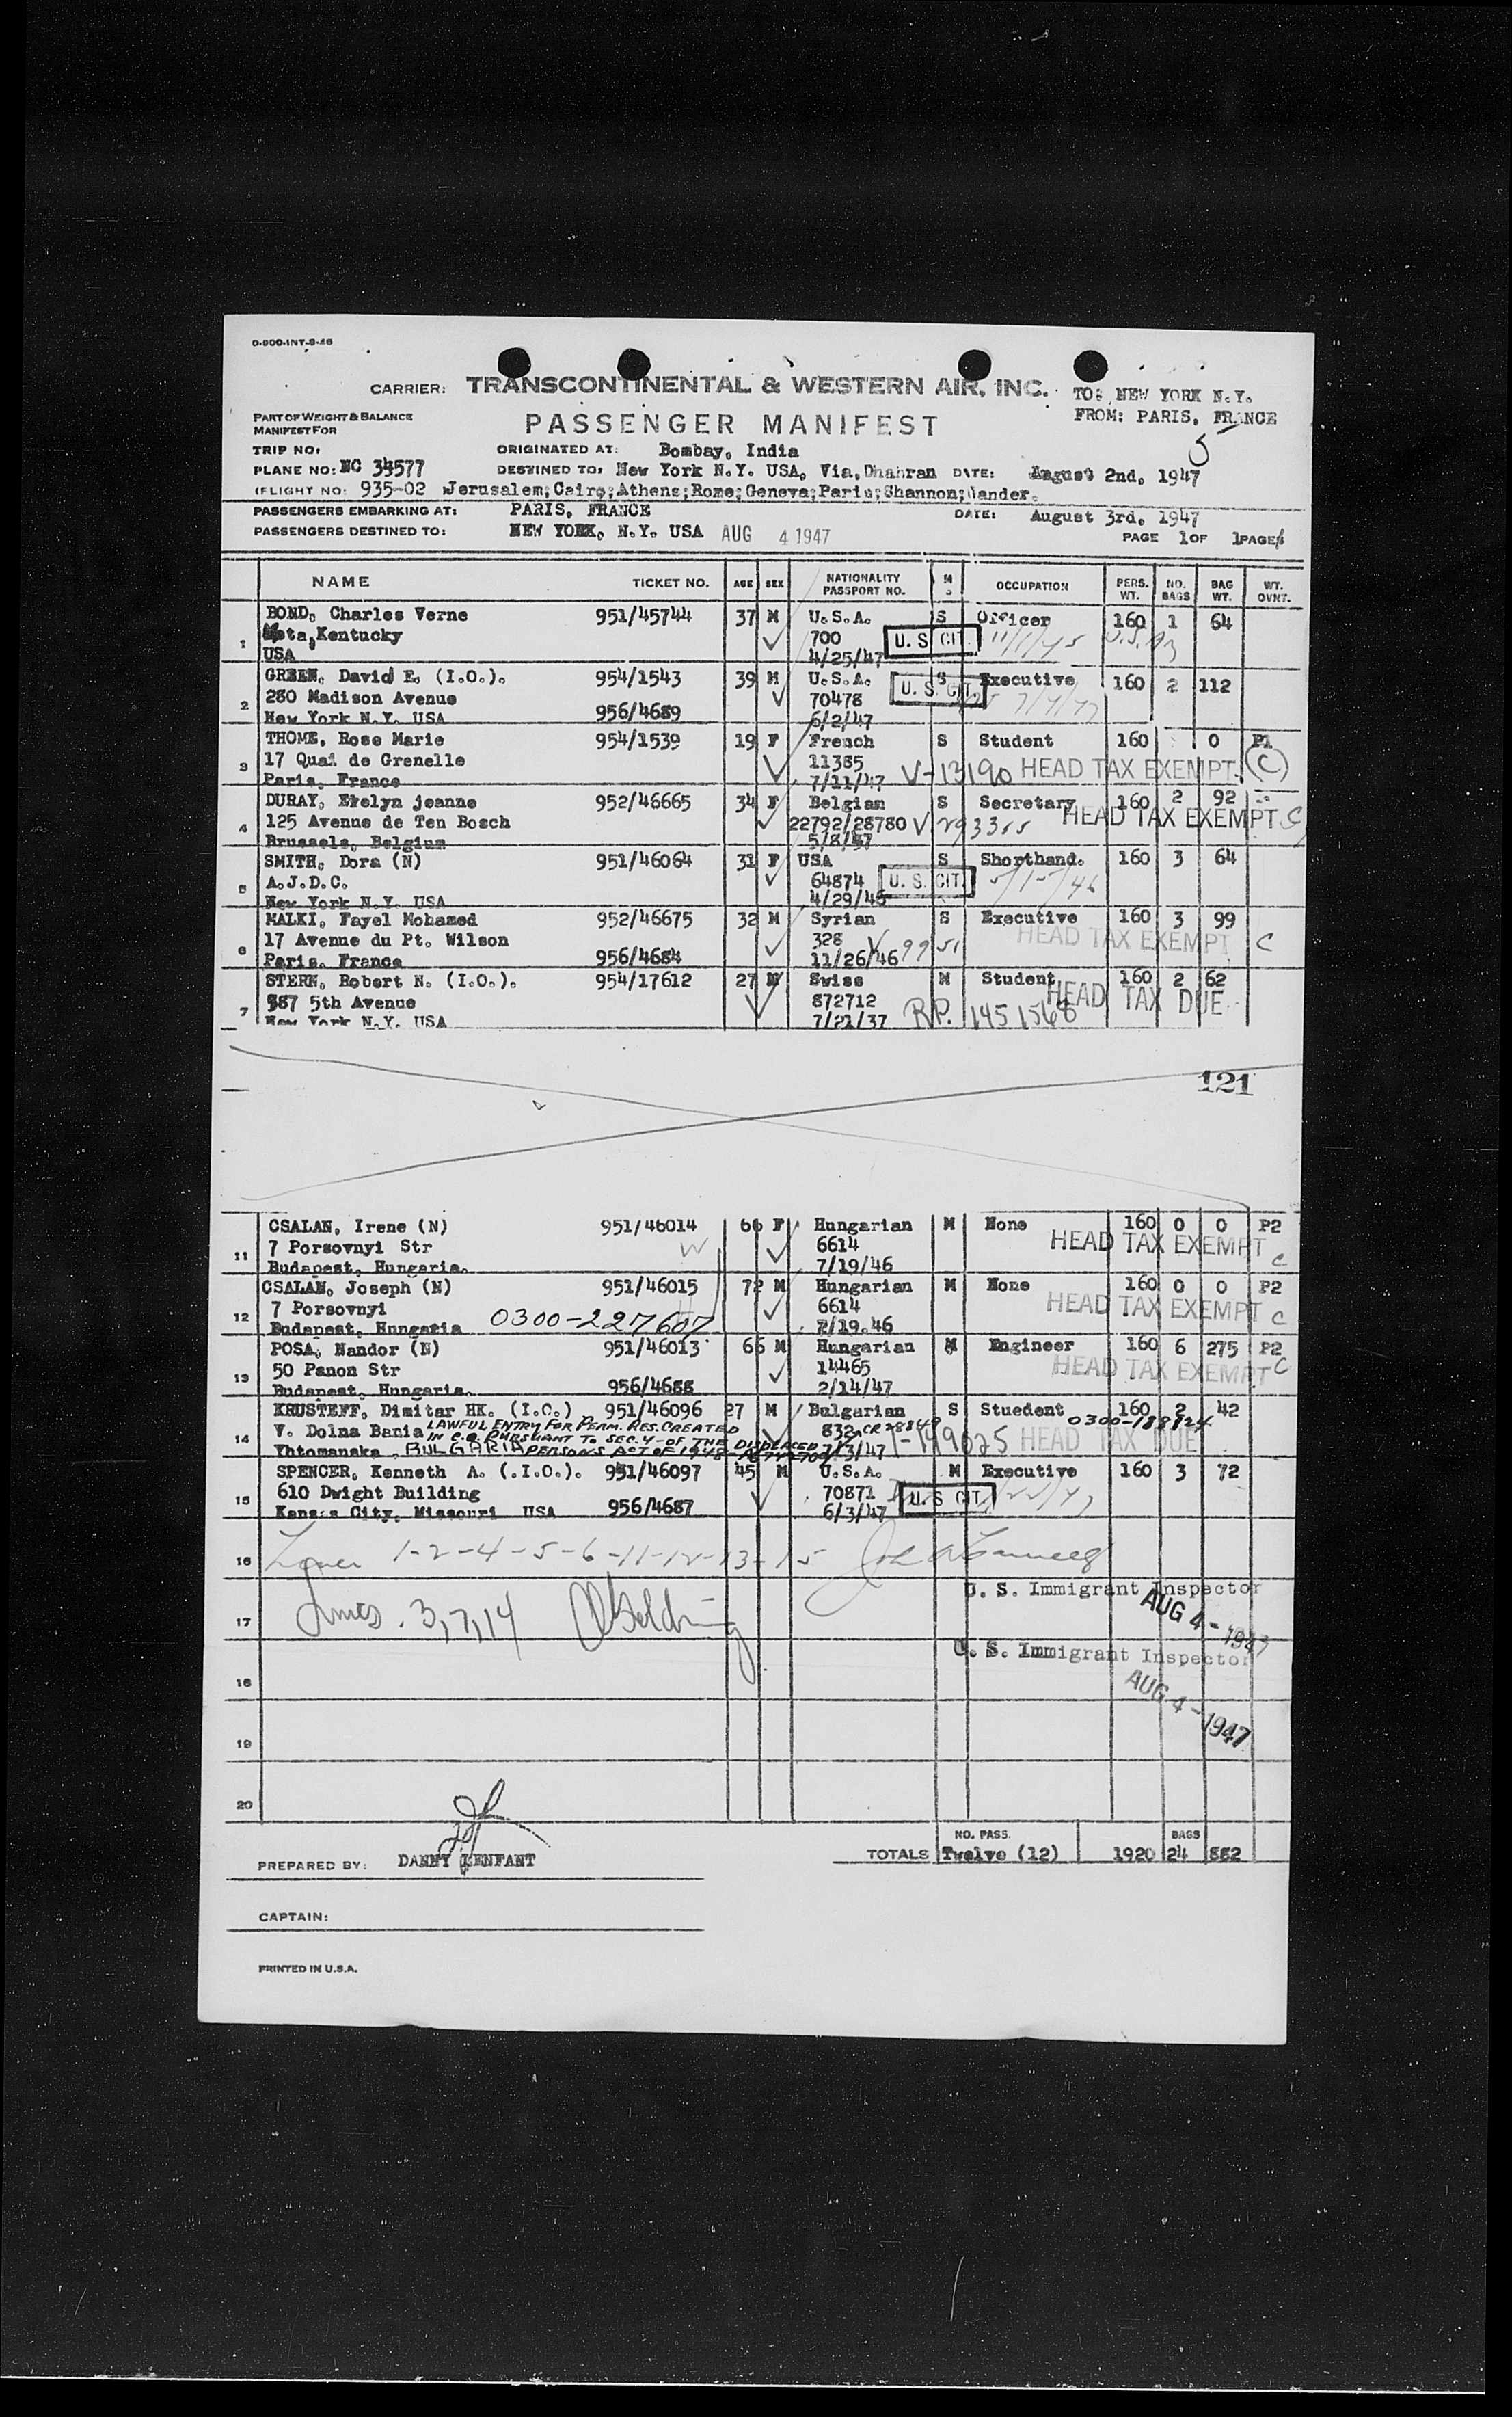 O-800-INT-8-46
CARRIER: TRANSCONTINENTAL & WESTERN AIR, INC. TO: NEW YORK N.Y.
PART OF WEIGHT & BALANCE
MANIFEST FOR
PASSENGER MANIFEST
FROM: PARIS, FRANCE
5
TRIP NO:
ORIGINATED AT: Bombay, India
PLANE NO: NC 34577
DESTINED TO: New York N.Y. USA, Via, Dhahran DATE: August 2nd, 1947
(FLIGHT NO: 935-02 Jerusalem; Cairo; Athens; Rome; Geneva; Paris; Shannon; Gander.
PASSENGERS EMBARKING AT: PARIS, FRANCE DATE: August 3rd, 1947
PASSENGERS DESTINED TO: NEW YORK, N.Y. USA AUG 4 1947 PAGE 1 OF 1 PAGE
NAME TICKET NO. AGE SEX NATIONALITY PASSPORT NO. M S OCCUPATION PERS. WT. NO. BAGS BAG WT. WT. OVNT.
BOND, Charles Verne 951/45744 37 M U.S.A. S Officer 160 1 64
1 Meta, Kentucky 700 U. S. CIT. 11/1/45
USA 4/25/47
GREEN, David E. (I.O.). 954/1543 39 M U.S.A. S Executive 160 2 112
2 280 Madison Avenue 70478 U. S. CIT.
New York N.Y. USA 956/4689 6/2/47
THOME, Rose Marie 954/1539 19 F French S Student 160 0 P1
3 17 Quai de Grenelle 11385 V-13190 HEAD TAX EXEMPT. C
Paris, France 7/11/47
DURAY, Evelyn jeanne 952/46665 34 F Belgian S Secretary 160 2 92
4 125 Avenue de Ten Bosch 22792/28780 V 293355 HEAD TAX EXEMPT C
Brussels, Belgium 5/8/47
SMITH, Dora (N) 951/46064 31 F USA S Shorthand. 160 3 64
5 A.J.D.C. 64874 U. S. CIT.
New York N.Y. USA 4/29/46
MALKI, Fayel Mohamed 952/46675 32 M Syrian S Executive 160 3 99
6 17 Avenue du Pt. Wilson 328 HEAD TAX EXEMPT C
Paris, France 956/4684 11/26/46
STERN, Robert N. (I.O.). 954/17612 27 M Swiss M Student 160 2 62
7 587 5th Avenue 872712 R.P. 1451568 HEAD TAX DUE
New York N.Y. USA 7/21/37
121
CSALAN, Irene (N) 951/46014 66 F Hungarian M None 160 0 0 P2
11 7 Porsovnyi Str 6614 HEAD TAX EXEMPT C
Budapest, Hungaria. 7/19/46
CSALAN, Joseph (N) 951/46015 72 M Hungarian M None 160 0 0 P2
12 7 Porsovnyi 6614 HEAD TAX EXEMPT C
Budapest, Hungaria 0300-227607 7/19.46
POSA, Nandor (N) 951/46013 66 M Hungarian M Engineer 160 6 275 P2
13 50 Panon Str 14465 HEAD TAX EXEMPT C
Budapest, Hungaria. 956/4688 2/14/47
KRUSTEFF, Dimitar HK. (I.O.) 951/46096 27 M Bulgarian S Stuedent 160 2 42
14 V. Dolna Bania LAWFUL ENTRY FOR PERM. RES. CREATED 832 0300-188824
IN C.O. PURSUANT TO SEC. 4 OF THE DISPLACED HEAD TAX DUE
Yhtomanska, BULGARIA PERSONS ACT OF 1948 7/3/47
SPENCER, Kenneth A. (.I.O.). 951/46097 45 M U.S.A. M Executive 160 3 72
15 610 Dwight Building 70871 U. S CIT.
Kansas City, Missouri USA 956/4687 6/3/47
16 1-2-4-5-6-11-12-13-15
U. S. Immigrant Inspector
AUG 4 - 1947
17 Lines. 3, 7, 14
U. S. Immigrant Inspector
AUG 4 - 1947
18
19
20
PREPARED BY: DANNY LENFANT
NO. PASS. BAGS
TOTALS Twelve (12) 1920 24 882
CAPTAIN:
PRINTED IN U.S.A.